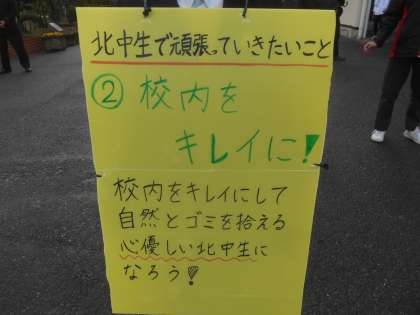 北中生で頑張っていきたいこと
② 校内を
キレイに!
校内をキレイにして
自然とゴミを拾える
心優しい北中生に
なろう!